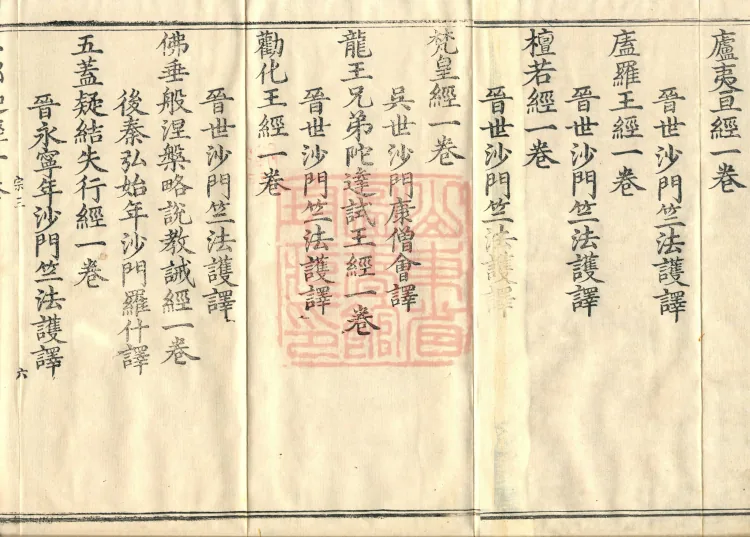 廬夷亘經一卷
晉世沙門竺法護譯
廅羅王經一卷
晉世沙門竺法護譯
檀若經一卷
晉世沙門竺法護譯
梵皇經一卷
吳世沙門康僧會譯
龍王兄弟陀達試王經一卷
晉世沙門竺法護譯
勸化王經一卷
晉世沙門竺法護譯
佛垂般涅槃略說教誡經一卷
後秦弘始年沙門羅什譯
五蓋疑結失行經一卷
晉永寧年沙門竺法護譯
宗三
六